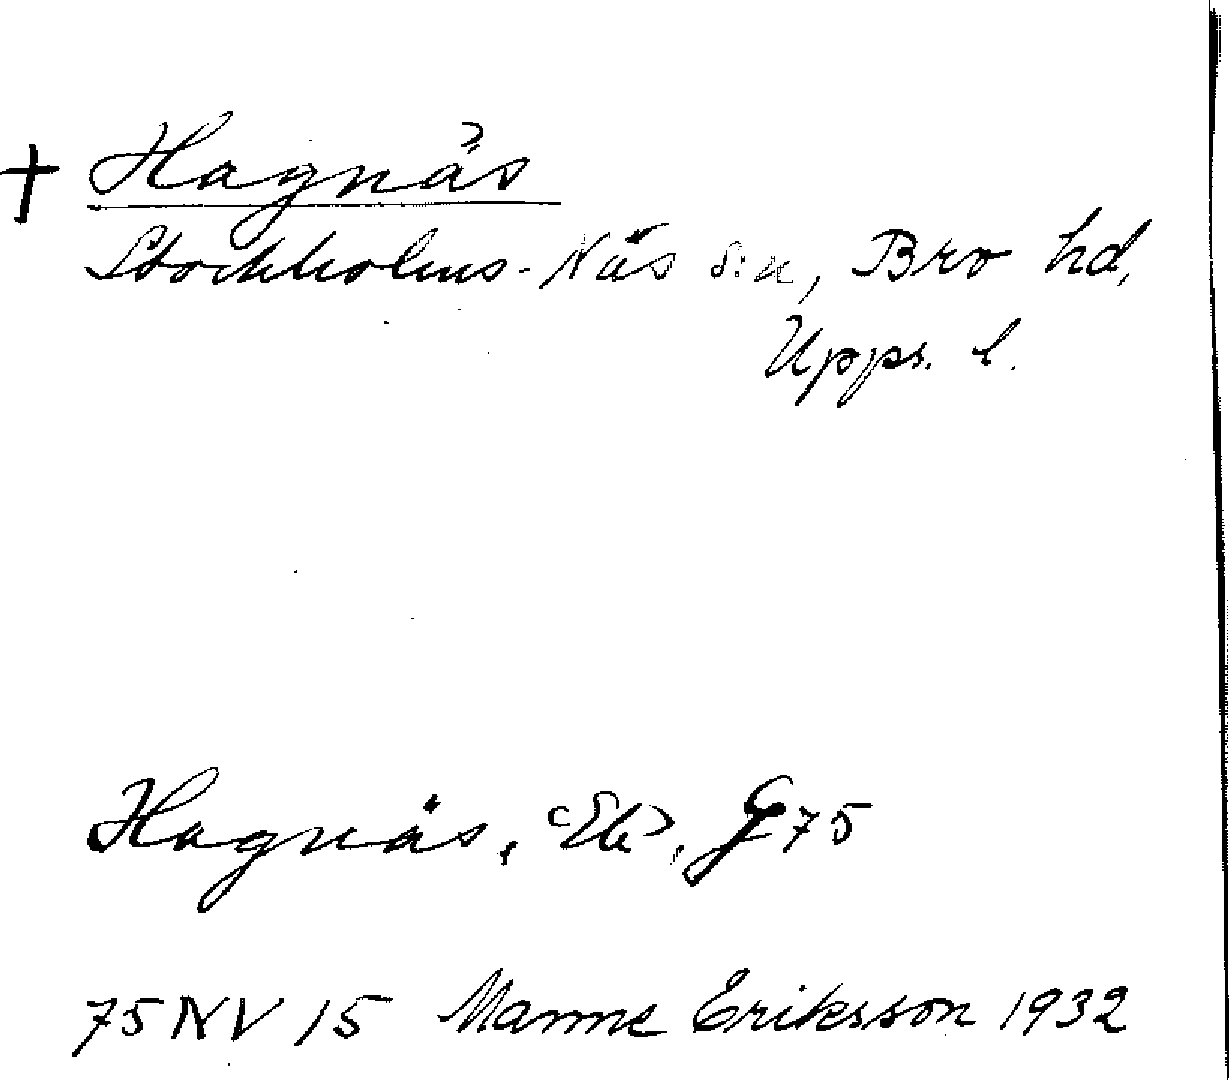 + Hagnäs
Stockholms-Näs sn, Bro hd,
Upps. l.
Hagnäs, <Eb>, G 75
75 NV 15 Manne Eriksson 1932